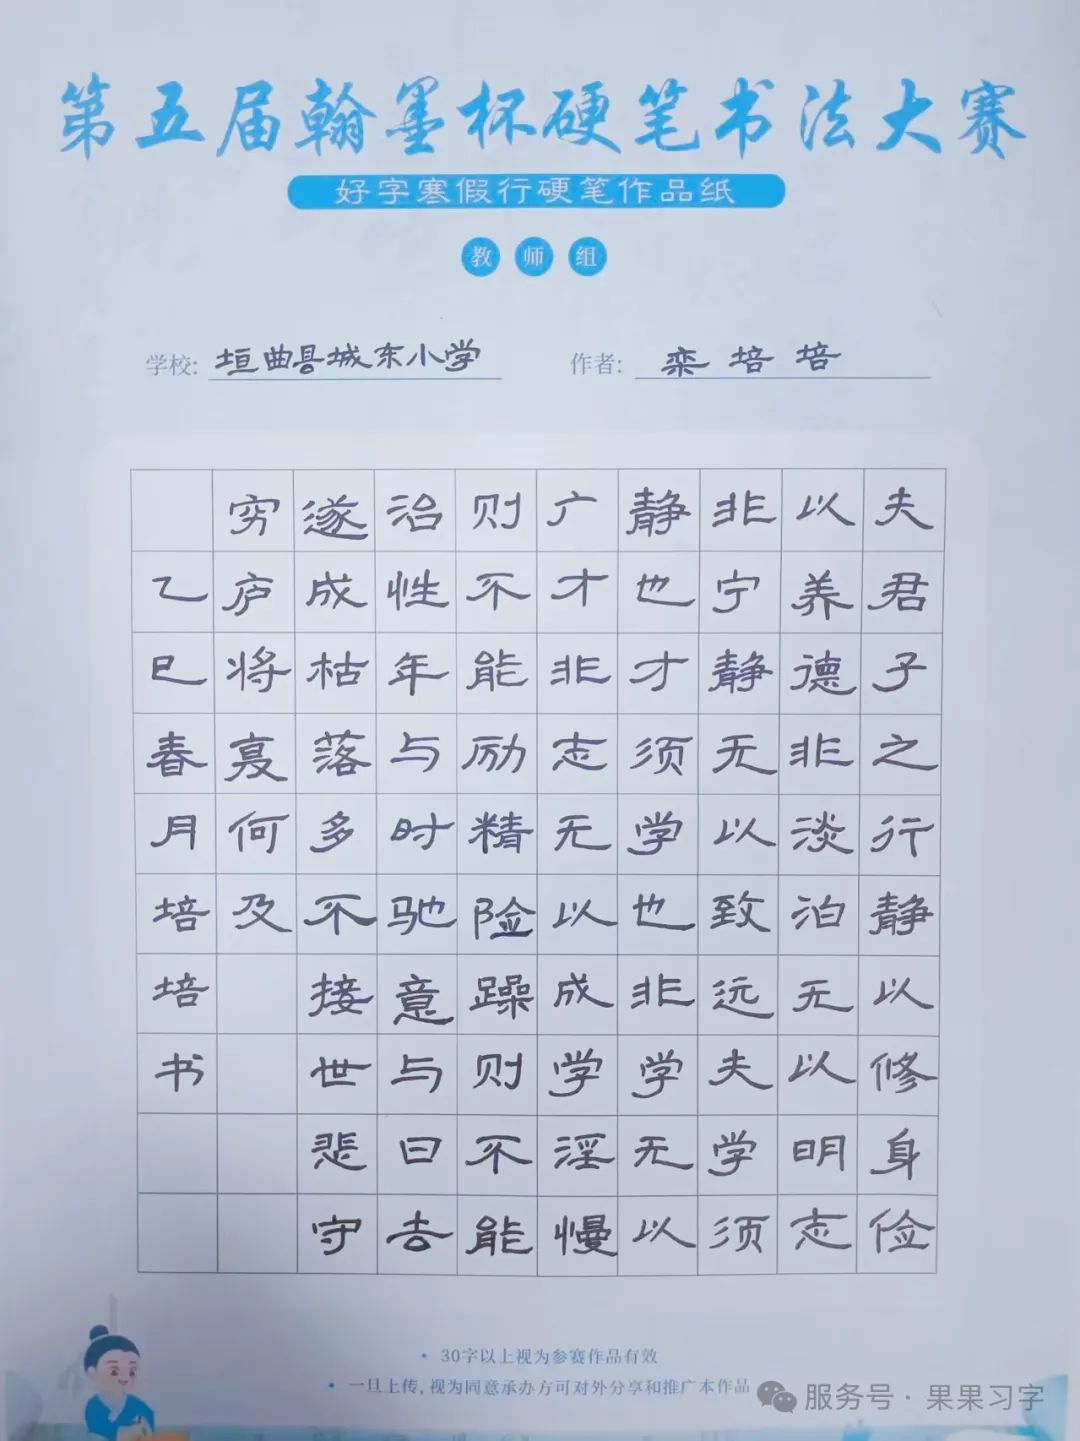 第五届翰墨杯硬笔书法大赛
好字寒假行硬笔作品纸
教师组
学校: 垣曲县城东小学 作者: 栾培培
夫君子之行静以修身俭
以养德非淡泊无以明志
非宁静无以致远夫学须
静也才须学也非学无以
广才非志无以成学淫慢
则不能励精险躁则不能
治性年与时驰意与日去
遂成枯落多不接世悲守
穷庐将复何及
乙巳春月培培书
• 30字以上视为参赛作品有效
• 一旦上传,视为同意承办方可对外分享和推广本作品
服务号 · 果果习字